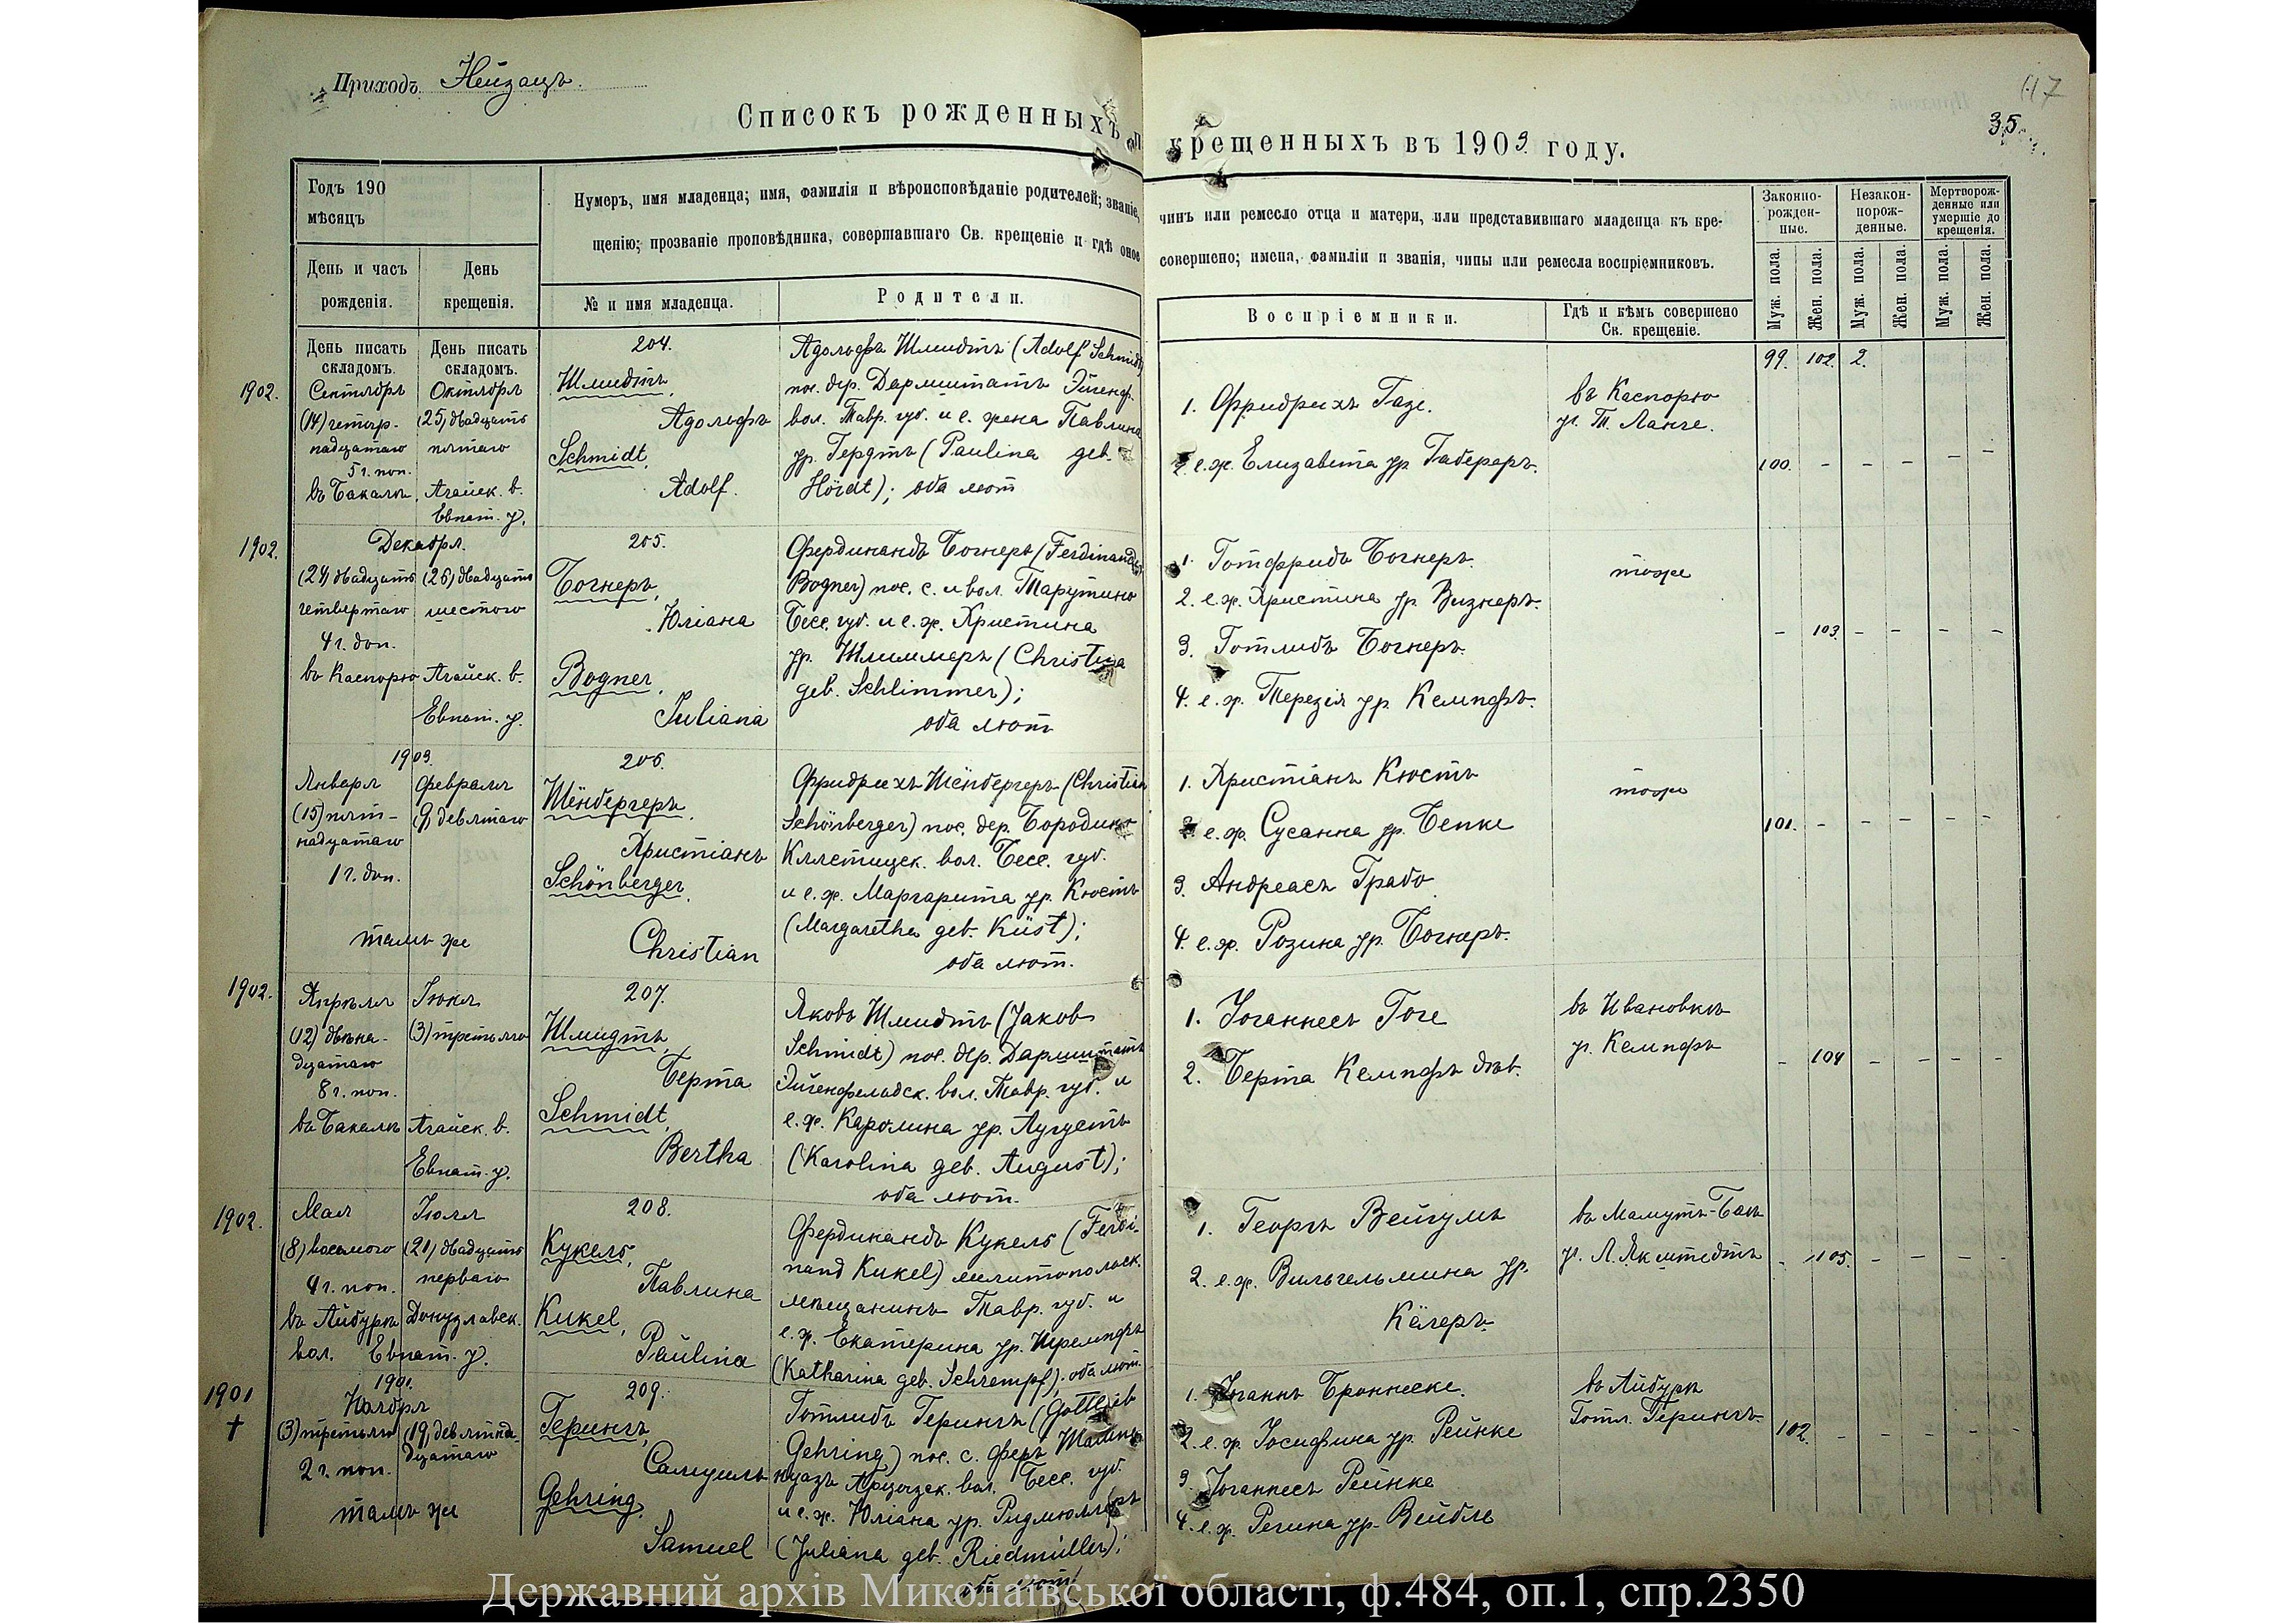 Приходъ Нейзацъ.
117
35
Списокъ рожденныхъ и крещенныхъ въ 1903 году.
Годъ 190
мѣсяцъ
Нумеръ, имя младенца; имя, фамилія и вѣроисповѣданіе родителей; званіе, чинъ или ремесло отца и матери, или представившаго младенца къ кре-
щенію; прозваніе проповѣдника, совершавшаго Св. крещеніе и гдѣ оное совершено; имена, фамиліи и званія, чины или ремесла воспріемниковъ.
Законно-
рожден-
ные.
Незакон-
норож-
денные.
Мертворож-
денные или
умершіе до
крещенія.
День и часъ
рожденія.
День
крещенія.
№ и имя младенца.
Родители.
Воспріемники.
Гдѣ и кѣмъ совершено
Св. крещеніе.
Муж. пола.
Жен. пола.
Муж. пола.
Жен. пола.
Муж. пола.
Жен. пола.
День писать
складомъ.
День писать
складомъ.
99. 102. 2.
1902.
Сентября
(14) четыр-
надцатаго
5 ч. поп.
въ Бакалъ,
Октября
(25) двадцать
пятаго
Агайск. в.
Евпат. у.
204.
Шмидтъ,
Адольфъ
Schmidt,
Adolf.
Адольфъ Шмидтъ (Adolf Schmidt)
пос. дер. Дармштатъ Эйгенф.
вол. Тавр. губ. и е. жена Павлина
ур. Гердтъ (Paulina geb.
Hördt); оба лют
1. Фридрихъ Газе.
2. е. ж. Елизавета ур. Габереръ.
въ Каспорю
у. Т. Ланге.
100. - - - - -
1902.
Декабря.
(24) двадцать
четвертаго
4 ч. доп.
въ Каспорю
(26) двадцать
шестого
Агайск. в.
Евпат. у.
205.
Богнеръ,
Юліана
Bogner,
Juliana
Фердинандъ Богнеръ (Ferdinand
Bogner) пос. с. и вол. Тарутино
Бесс. губ. и е. ж. Христина
ур. Шлиммеръ (Christina
geb. Schlimmer);
оба лют
1. Готфридъ Богнеръ.
2. е. ж. Христина ур. Визнеръ.
3. Готлибъ Богнеръ.
4. е. ж. Терезія ур. Кемпфъ.
тоже
- 103. - - - -
1903.
Января
(15) пят-
надцатаго
1 ч. доп.
Февраля
(9) девятаго
тамъ же
206.
Шёнбергеръ,
Христіанъ
Schönberger,
Christian
Фридрихъ Шёнбергеръ (Christian
Schönberger) пос. дер. Бородино
Клястицк. вол. Бесс. губ.
и е. ж. Маргарита ур. Кюстъ
(Margaretha geb. Küst);
оба лют.
1. Христіанъ Кюстъ
2. е. ж. Сусанна ур. Бепке
3. Андреасъ Грабо
4. е. ж. Розина ур. Богнеръ.
тоже
101. - - - - -
1902.
Апрѣля
(12) двѣна-
дцатаго
8 ч. поп.
въ Бакалъ
Іюня
(3) третьяго
Агайск. в.
Евпат. у.
207.
Шмидтъ,
Берта
Schmidt,
Bertha
Яковъ Шмидтъ (Jakob
Schmidt) пос. дер. Дармштатъ
Эйгенфельдск. вол. Тавр. губ. и
е. ж. Каролина ур. Аугустъ
(Karolina geb. August);
оба лют.
1. Іоганнесъ Гоге
2. Берта Кемпфъ дѣв.
въ Ивановкѣ
у. Кемпфъ
- 104 - - - -
1902.
Мая
(8) восьмого
4 ч. поп.
въ Айбуръ
вол.
Іюля
(21) двадцать
перваго
Донузлавск.
Евпат. у.
208.
Кукель,
Павлина
Kukel,
Paulina
Фердинандъ Кукель (Ferdi-
nand Kukel) мелитопольск.
мѣщанинъ Тавр. губ. и
е. ж. Екатерина ур. Шремпфъ
(Katharina geb. Schrempf); оба лют.
1. Георгъ Вейгумъ
2. е. ж. Вильгельмина ур.
Кёлеръ.
въ Мамутъ-Бай
- 105. - - - -
1901
†
1901.
Ноября
(3) третьяго
2 ч. поп.
(19) девятна-
дцатаго
тамъ же
209.
Герингъ,
Самуилъ
Gehring,
Samuel
Готлибъ Герингъ (Gottlieb
Gehring) пос. с. Феръ Шампе-
нуазъ Арцизск. вол. Бесс. губ.
и е. ж. Юліана ур. Ридмюллеръ
(Juliana geb. Riedmüller);
оба лют.
1. Іоганнъ Броннеске.
2. е. ж. Іосифина ур. Рейнке
3. Іоганнесъ Рейнке
4. е. ж. Регина ур. Вейбле
въ Айбуръ
Готл. Герингъ
102. - - - - -
Державний архів Миколаївської області, ф.484, оп.1, спр.2350